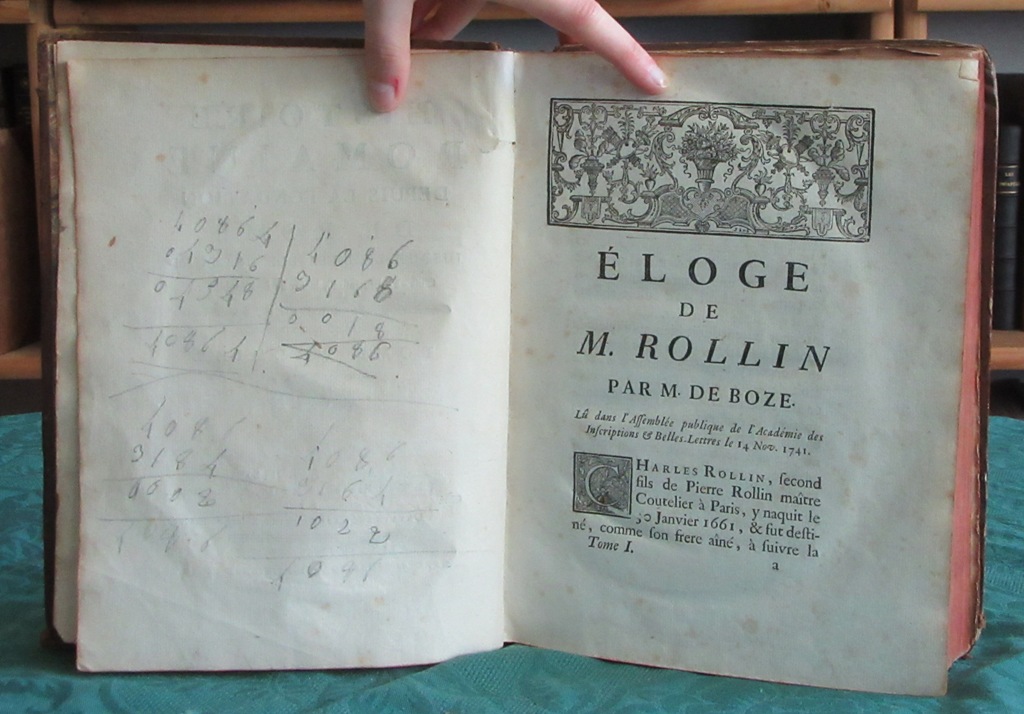 40864
1086
3168
0018
4086
40864
1086
3184
1086
1022
ÉLOGE
DE
M. ROLLIN
PAR M. DE BOZE.
Lû dans l'Assemblée publique de l'Académie des
Inscriptions & Belles-Lettres le 14 Nov. 1741.
CHARLES ROLLIN, second
fils de Pierre Rollin maître
Coutelier à Paris, y naquit le
30 Janvier 1661, & fut desti-
né, comme son frere aîné, à suivre la
Tome I.
a